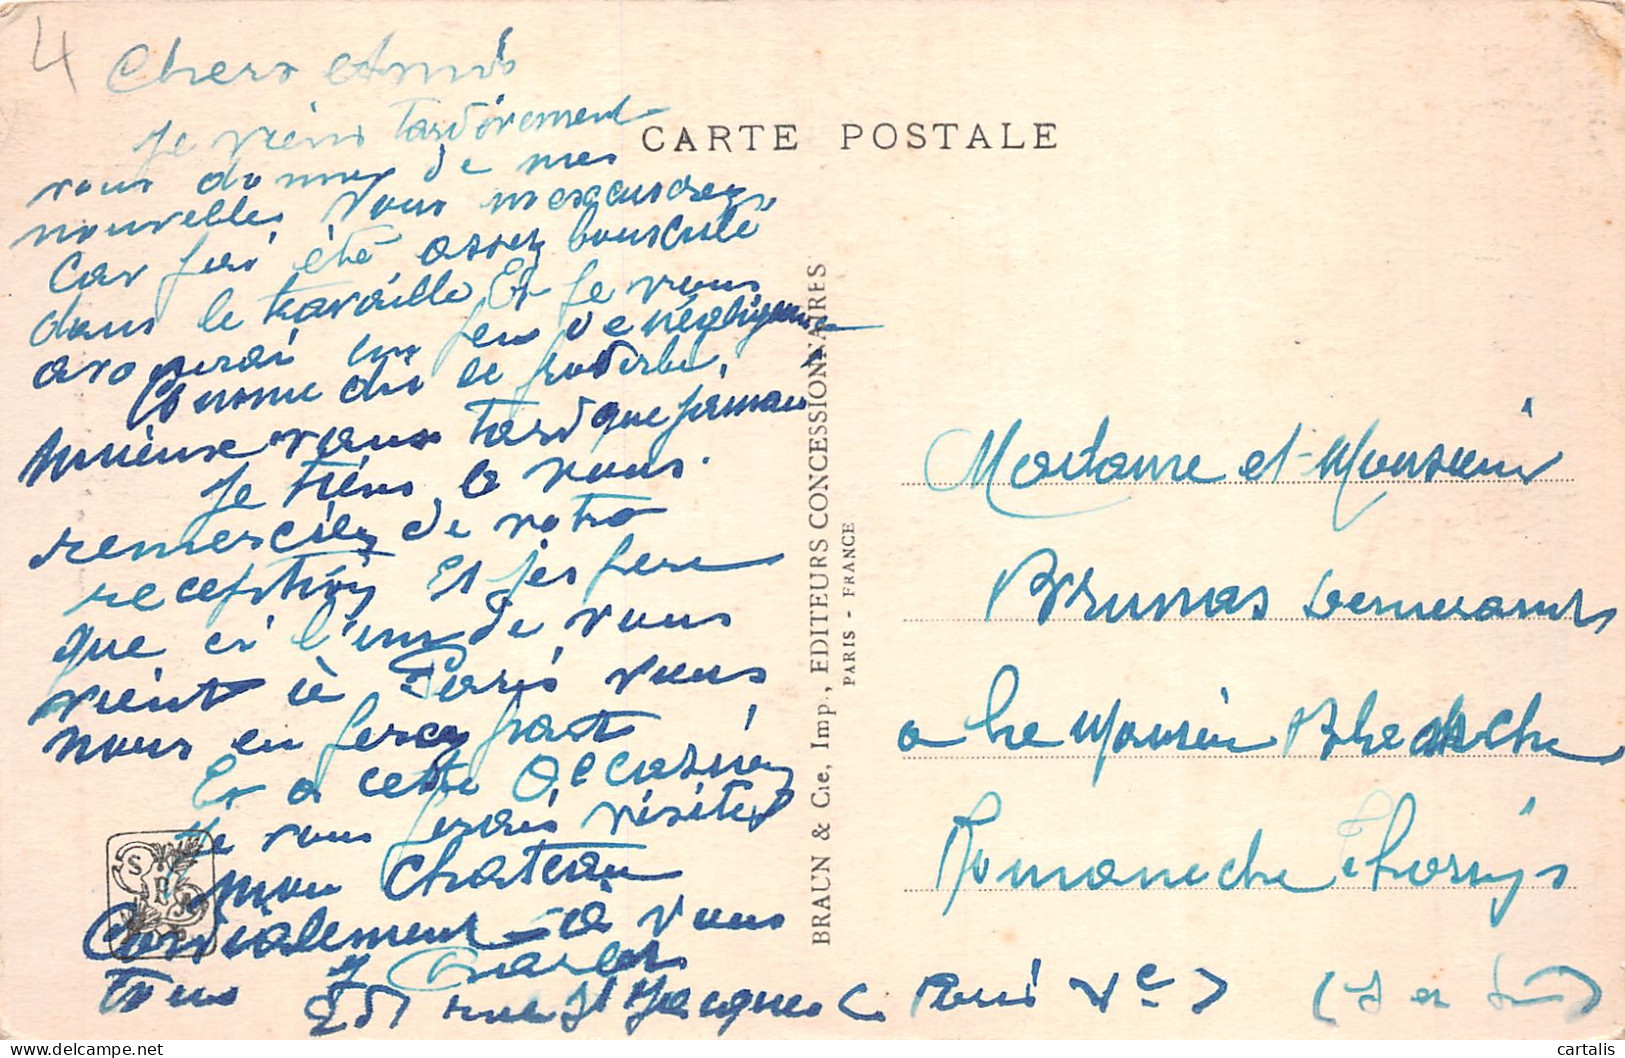 4
Chers Amis
Je viens tardivement
vous donner de mes
nouvelles, Vous m'excuserez,
Car j'ai été assez bousculé
dans le travaille Et je vous
avouerai un peu de négligence
Comme dis le proverbe,
Mieux vaux tard que jamais
Je tiens a vous
remerciez de votre
reception Et j'espere
que si l'un de vous
vient à Paris vous
nous en ferez part
Et a cette Occasion
Je vous ferais visitez
mon Chateau
Cordialement à Vous
tous
251 rue St Jacques ( Paris Ve )
CARTE POSTALE
BRAUN & Cie, Imp., EDITEURS CONCESSIONNAIRES
PARIS - FRANCE
Madame et Monsieur
Brunas
a
Romaneche Thorins
(S et L)
cartalis